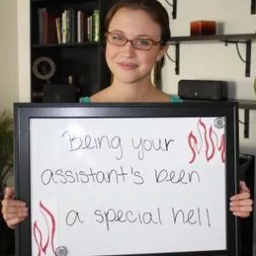 Being your
assistant's been
a special hell